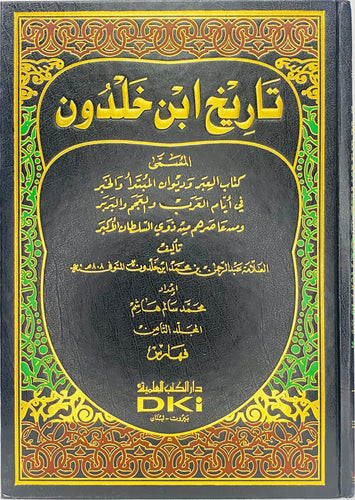 تَاريخ ابْن خَلْدُون
المُسَمَّىٰ
كتاب العِبَر وَديوان المُبْتَدَأ وَالخَبَر
في أيّام العَرَب والعَجَم والبَربَر
ومن عَاصَرهم من ذَوي السُّلطان الأكبَر
تأليف
العَلّامة عَبد الرحمٰن بن محمّد ابن خلدون المتوفى ٨٠٨ هـ
إعداد
محمّد سالم هاشم
المجَلّد الثامِن
فهَارس
دار الكتب العلمية
DKi
بيروت - لبنان